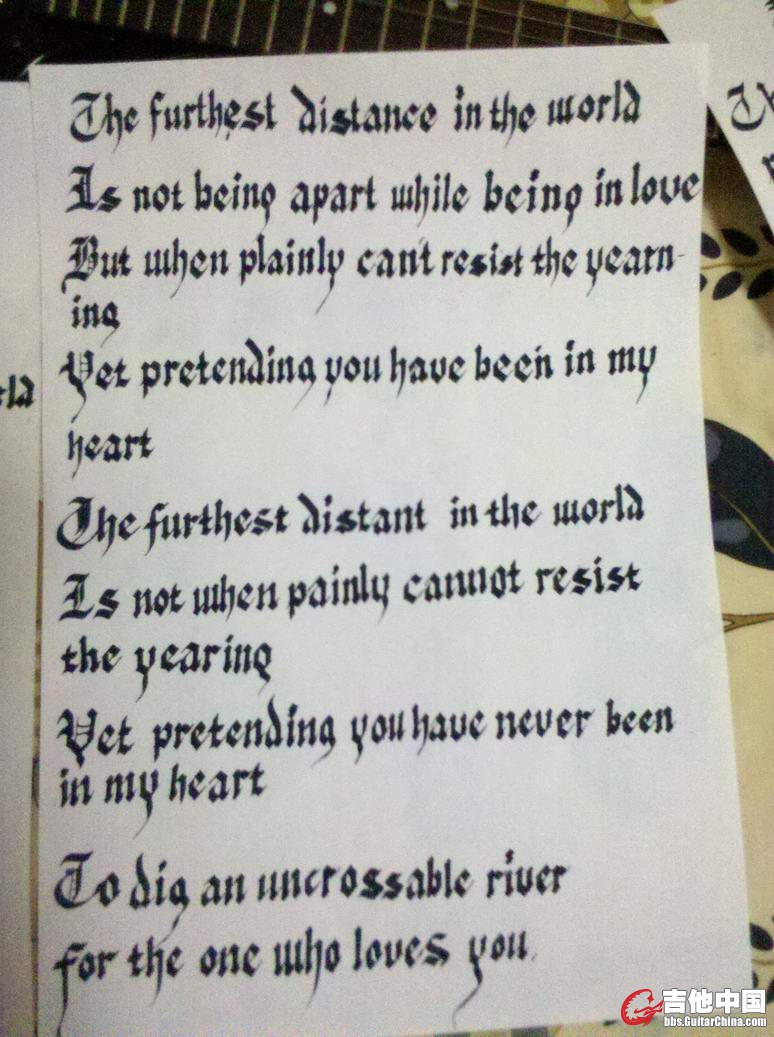 The furthest distance in the world
Is not being apart while being in love
But when plainly can't resist the yearn-
ing
Yet pretending you have been in my
heart
The furthest distant in the world
Is not when painly cannot resist
the yearing
Yet pretending you have never been
in my heart
To dig an uncrossable river
for the one who loves you.
吉他中国
bbs.GuitarChina.com